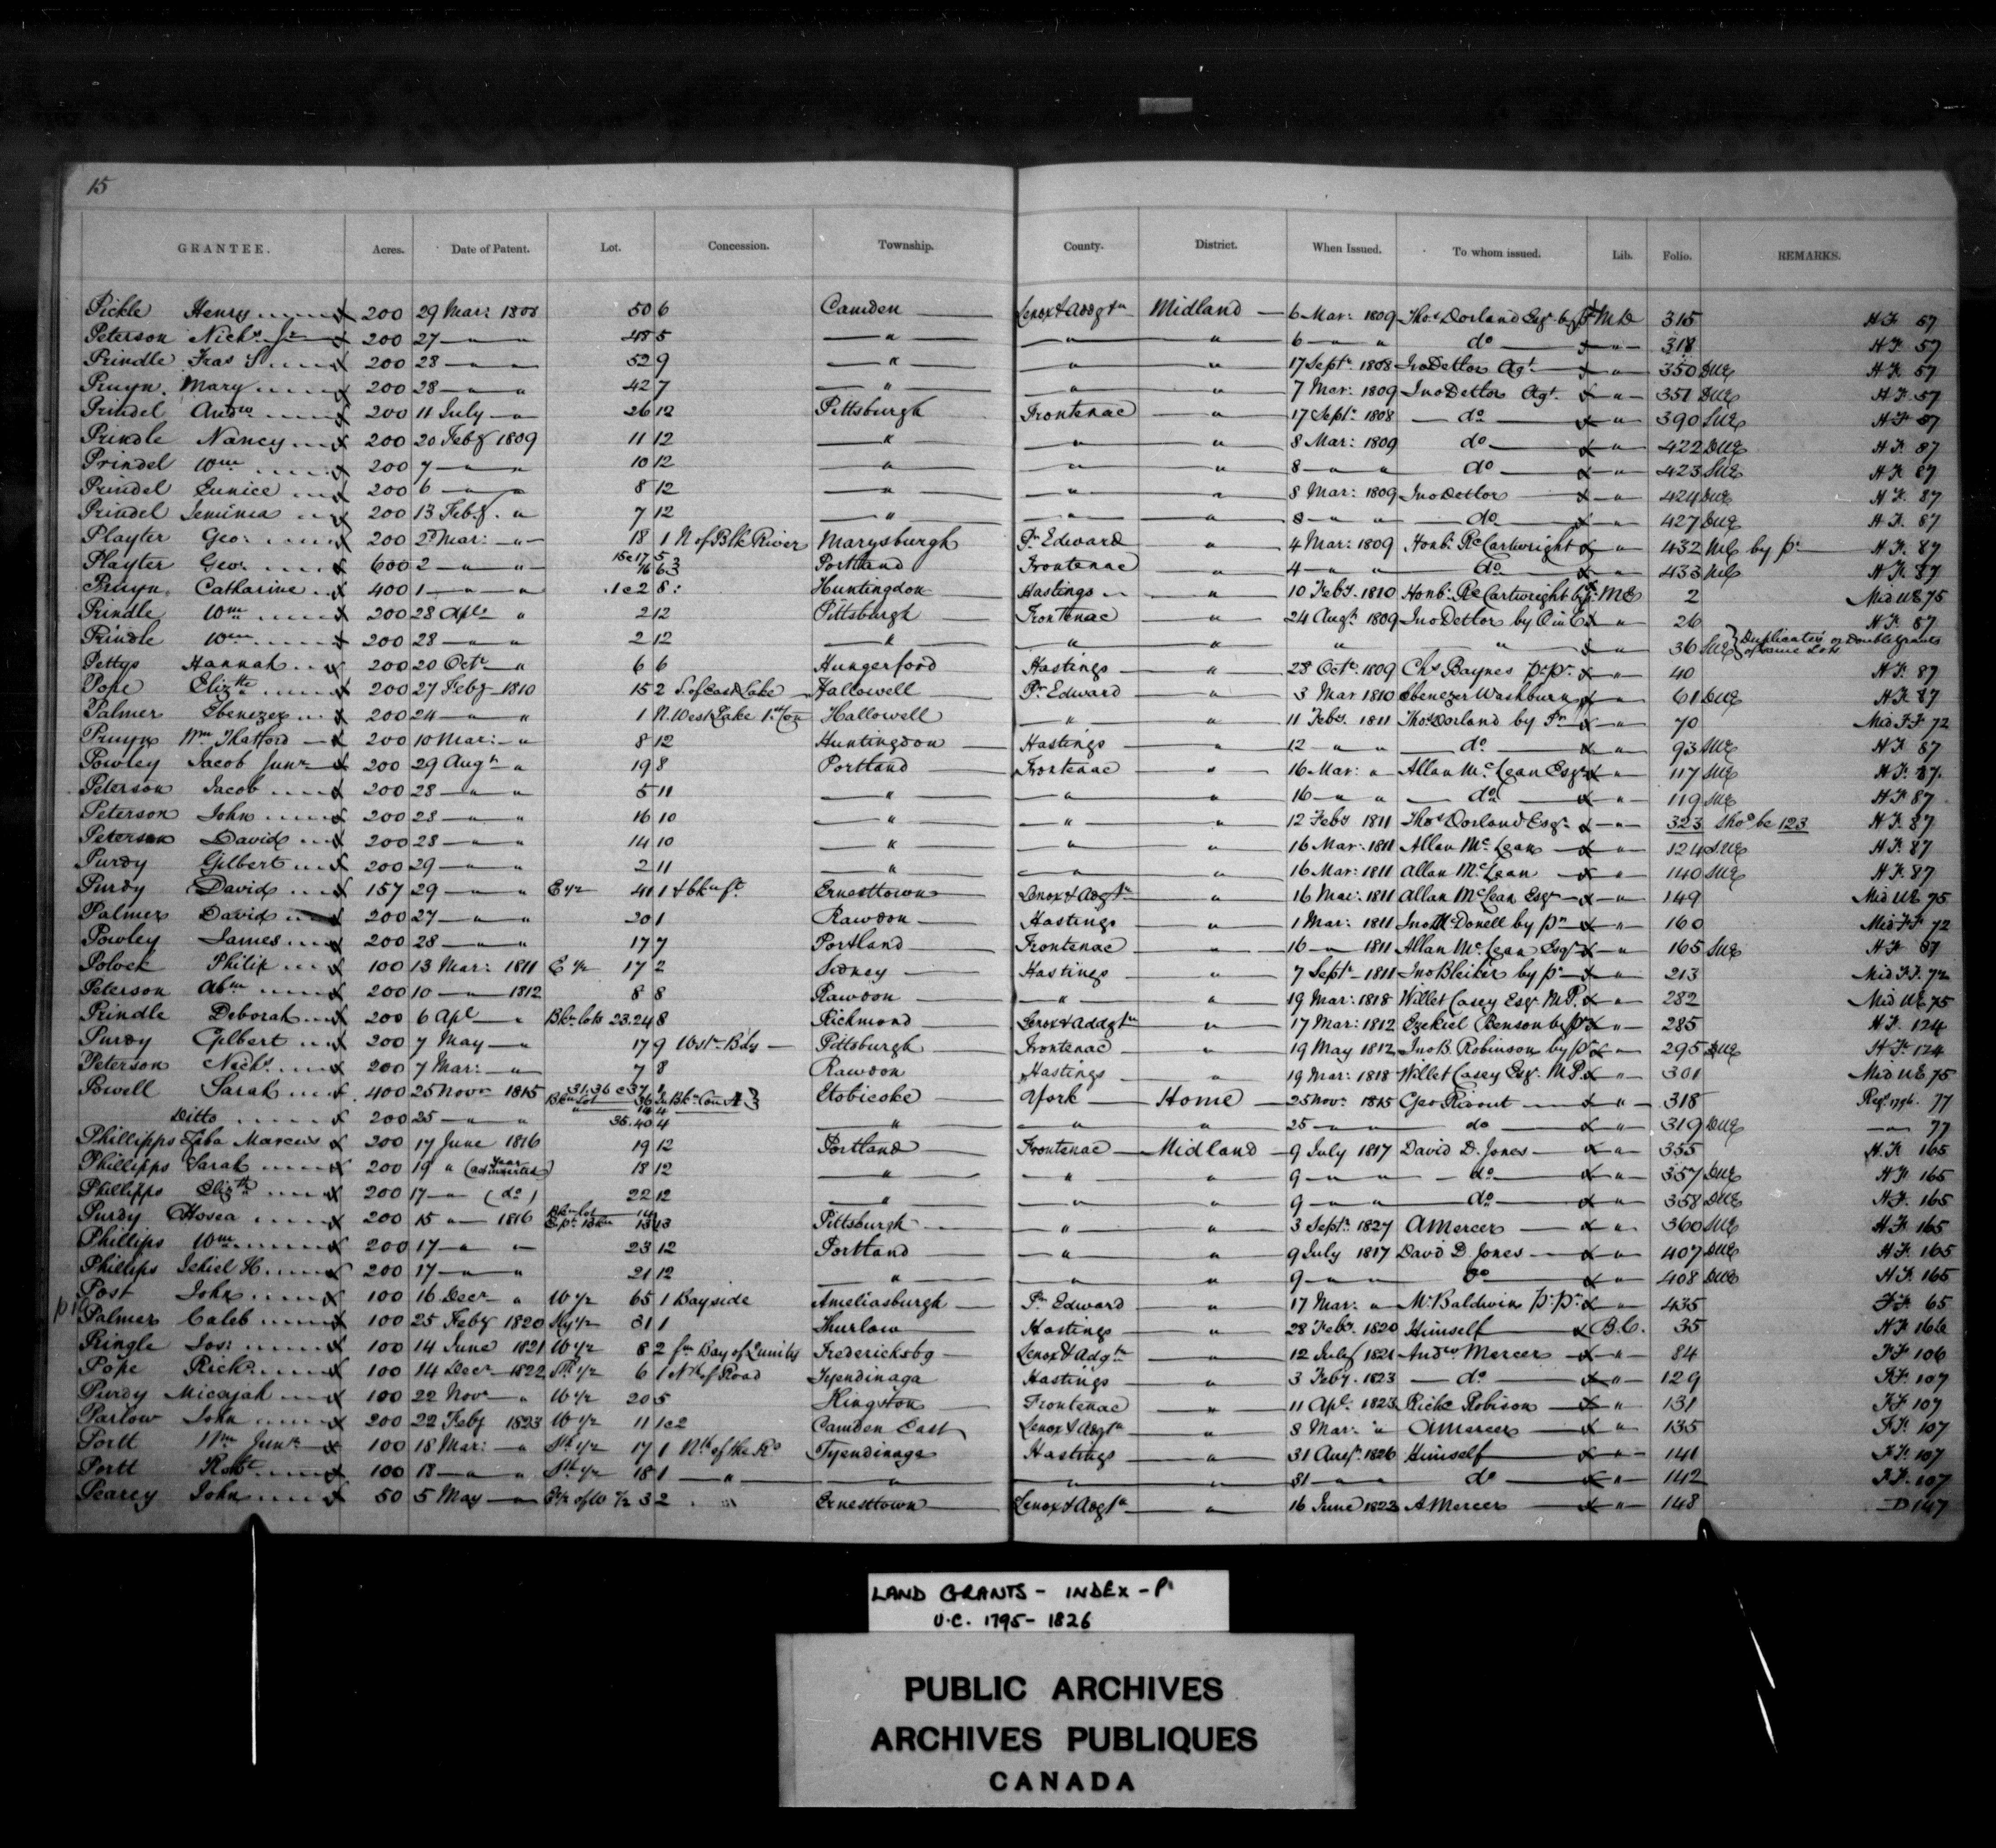 15
GRANTEE. Acres. Date of Patent. Lot. Concession. Township. County. District. When Issued. To whom issued. Lib. Folio. REMARKS.
Pickle Henry 200 29 Mar: 1808 50 6 Camden Lenox & Addgtn Midland 6 Mar: 1809 Thos Dorland Esqr by pr MD 315 H.F. 57
Peterson Nichs Jr 200 27 " " 48 5 " " " 6 " " do " 318 H.F. 57
Prindle Fras S 200 28 " " 52 9 " " " 17 Septr 1808 Jno Detlor Agt " 350 DUE H.F. 57
Pruyn Mary 200 28 " " 42 7 " " " 7 Mar: 1809 Jno Detlor Agt " 351 DUE H.F. 57
Prindel Andw 200 11 July " 26 12 Pittsburgh Frontenac " 17 Septr 1808 do " 390 SUE H.F. 87
Prindle Nancy 200 20 Feby 1809 11 12 " " " 8 Mar: 1809 do " 422 DUE H.F. 87
Prindel Wm 200 7 " " 10 12 " " " 8 " " do " 423 SUE H.F. 87
Prindel Eunice 200 6 " " 8 12 " " " 8 Mar: 1809 Jno Detlor " 424 DUE H.F. 87
Prindel Jemima 200 13 Feby " 7 12 " " " 8 " " do " 427 DUE H.F. 87
Playter Geo: 200 2d Mar: " 18 1 N of Blk River Marysburgh Pr Edward " 4 Mar: 1809 Honbl Rd Cartwright " 432 by pr H.F. 87
Playter Geo: 600 2 " " 16 & 17 5 16 6 } Portland Frontenac " 4 " " do " 433 H.F. 87
Pruyn Catharine 400 1 " " 1 & 2 8: Huntingdon Hastings " 10 Feby 1810 Honbl Rd Cartwright by pr ME 2 Mid UE 75
Prindle Wm 200 28 Apl " 2 12 Pittsburgh Frontenac " 24 Augt 1809 Jno Detlor by " 26 H.F. 87
Prindle Wm 200 28 " " 2 12 " " " " " " 36 SUE } Duplicates or Double grants of same Lots
Pettys Hannah 200 20 Octr " 6 6 Hungerford Hastings " 28 Octr 1809 Chs Baynes pr pr " 40 H.F. 87
Pope Elizth 200 27 Feby 1810 15 2 S. of East Lake Hallowell Pr Edward " 3 Mar 1810 Ebenezer Washburn " 61 DUE H.F. 87
Palmer Ebenezer 200 24 " " 1 N. West Lake 1st Con Hallowell " " 11 Feby 1811 Thos Dorland by Pr " 70 Mid F.F. 72
Pruyn Wm Thatford 200 10 Mar: " 8 12 Huntingdon Hastings " 12 " " do " 93 SUE H.F. 87
Powley Jacob Junr 200 29 Augt " 19 8 Portland Frontenac " 16 Mar: " Allan McLean Esqr " 117 SUE H.F. 87
Peterson Jacob 200 28 " " 5 11 " " " 16 " " do " 119 SUE H.F. 87
Peterson John 200 28 " " 16 10 " " " 12 Feby 1811 Thos Dorland Esqr " 323 Shod be 123 H.F. 87
Peterson David 200 28 " " 14 10 " " " 16 Mar: 1811 Allan McLean " 124 SUE H.F. 87
Purdy Gilbert 200 29 " " 2 11 " " " 16 Mar: 1811 Allan McLean " 140 SUE H.F. 87
Purdy David 157 29 " " E 1/2 41 1 & bkn ft Ernesttown Lenox & Adgtn " 16 Mar: 1811 Allan McLean Esqr " 149 Mid UE 75
Palmer David 200 27 " " 20 1 Rawdon Hastings " 1 Mar: 1811 Jno McDonell by pr " 160 Mid F.F. 72
Powley James 200 28 " " 17 7 Portland Frontenac " 16 " 1811 Allan McLean Esqr " 165 SUE H.F. 87
Polock Philip 100 13 Mar: 1811 E 1/2 17 2 Sidney Hastings " 7 Septr 1811 Jno Bleiker by pr " 213 Mid F.F. 72
Peterson Abm 200 10 " 1812 8 8 Rawdon " " 19 Mar: 1818 Willet Casey Esqr M.P. " 282 Mid UE 75
Prindle Deborah 200 6 Apl " Bkn lots 23.24 8 Richmond Lenox & Addgtn " 17 Mar: 1812 Ezekiel Benson by pr " 285 H.F. 124
Purdy Gilbert 200 7 May " 17 9 Westn Bdy Pittsburgh Frontenac " 19 May 1812 Jno B. Robinson by pr " 295 DUE H.F. 124
Peterson Nichs 200 7 Mar: " 7 8 Rawdon Hastings " 19 Mar: 1818 Willet Casey Esqr M.P. " 301 Mid UE 75
Powell Sarah 400 25 Novr 1815 31.36 & 37 1 Bkn Lot 36 in Bkn Con A } Etobicoke York Home 25 Novr 1815 Geo Ridout " 318 Regt 1796. 77
Ditto 200 25 " " 35.40 4 " " " 25 " do " 319 DUE " 77
Phillipps Ziba Marcus 200 17 June 1816 19 12 Portland Frontenac Midland 9 July 1817 David D. Jones " 355 H.F. 165
Phillipps Sarah 200 19 " (Year omitted) 18 12 " " " 9 " " do " 357 DUE H.F. 165
Phillipps Elizth 200 17 " (do) 22 12 " " " 9 " " do " 358 DUE H.F. 165
Purdy Hosea 200 15 " 1816 Bkn lot 14 Ept Bkn 13 13 Pittsburgh " " 3 Septr 1827 A Mercer " 360 SUE H.F. 165
Phillips Wm 200 17 " " 23 12 Portland " " 9 July 1817 David D. Jones " 407 DUE H.F. 165
Phillips Jehiel H. 200 17 " " 21 12 " " " 9 " " do " 408 DUE H.F. 165
Post John 100 16 Decr " W 1/2 65 1 Bayside Ameliasburgh Pr Edward " 17 Mar: " Mr Baldwin pr pr " 435 F.F. 65
Palmer Caleb 100 25 Feby 1820 1/2 31 1 Thurlow Hastings " 28 Feby 1820 Himself B.C. 35 N.F. 166
Pringle Jos: 100 14 June 1821 W 1/2 8 2 fm Bay of Quinity Fredericksbg Lenox & Adgtn " 12 July 1821 Andrw Mercer " 84 F.F. 106
Pope Richd 100 14 Decr 1822 Sth 1/2 6 1 Nth of Road Tyendinaga Hastings " 3 Feby 1823 do " 129 F.F. 107
Purdy Micajah 100 22 Novr " W 1/2 20 5 Kingston Frontenac " 11 Apl 1823 Richd Robison " 131 F.F. 107
Parlow John 200 22 Feby 1823 W 1/2 11 1 & 2 Camden East Lenox & Adgtn " 8 Mar: " A Mercer " 135 F.F. 107
Portt Wm Junr 100 18 Mar: " Sth 1/2 17 1 Nth of the Rd Tyendinaga Hastings " 31 Augt 1826 Himself " 141 F.F. 107
Portt Robt 100 18 " " Sth 1/2 18 1 " " " " 31 " " do " 142 F.F. 107
Pearcy John 50 5 May " E 1/2 of W 1/2 3 2 " Ernesttown Lenox & Adgtn " 16 June 1823 A Mercer " 148 D 147
LAND GRANTS - INDEX - P
U.C. 1795 - 1826
PUBLIC ARCHIVES
ARCHIVES PUBLIQUES
CANADA